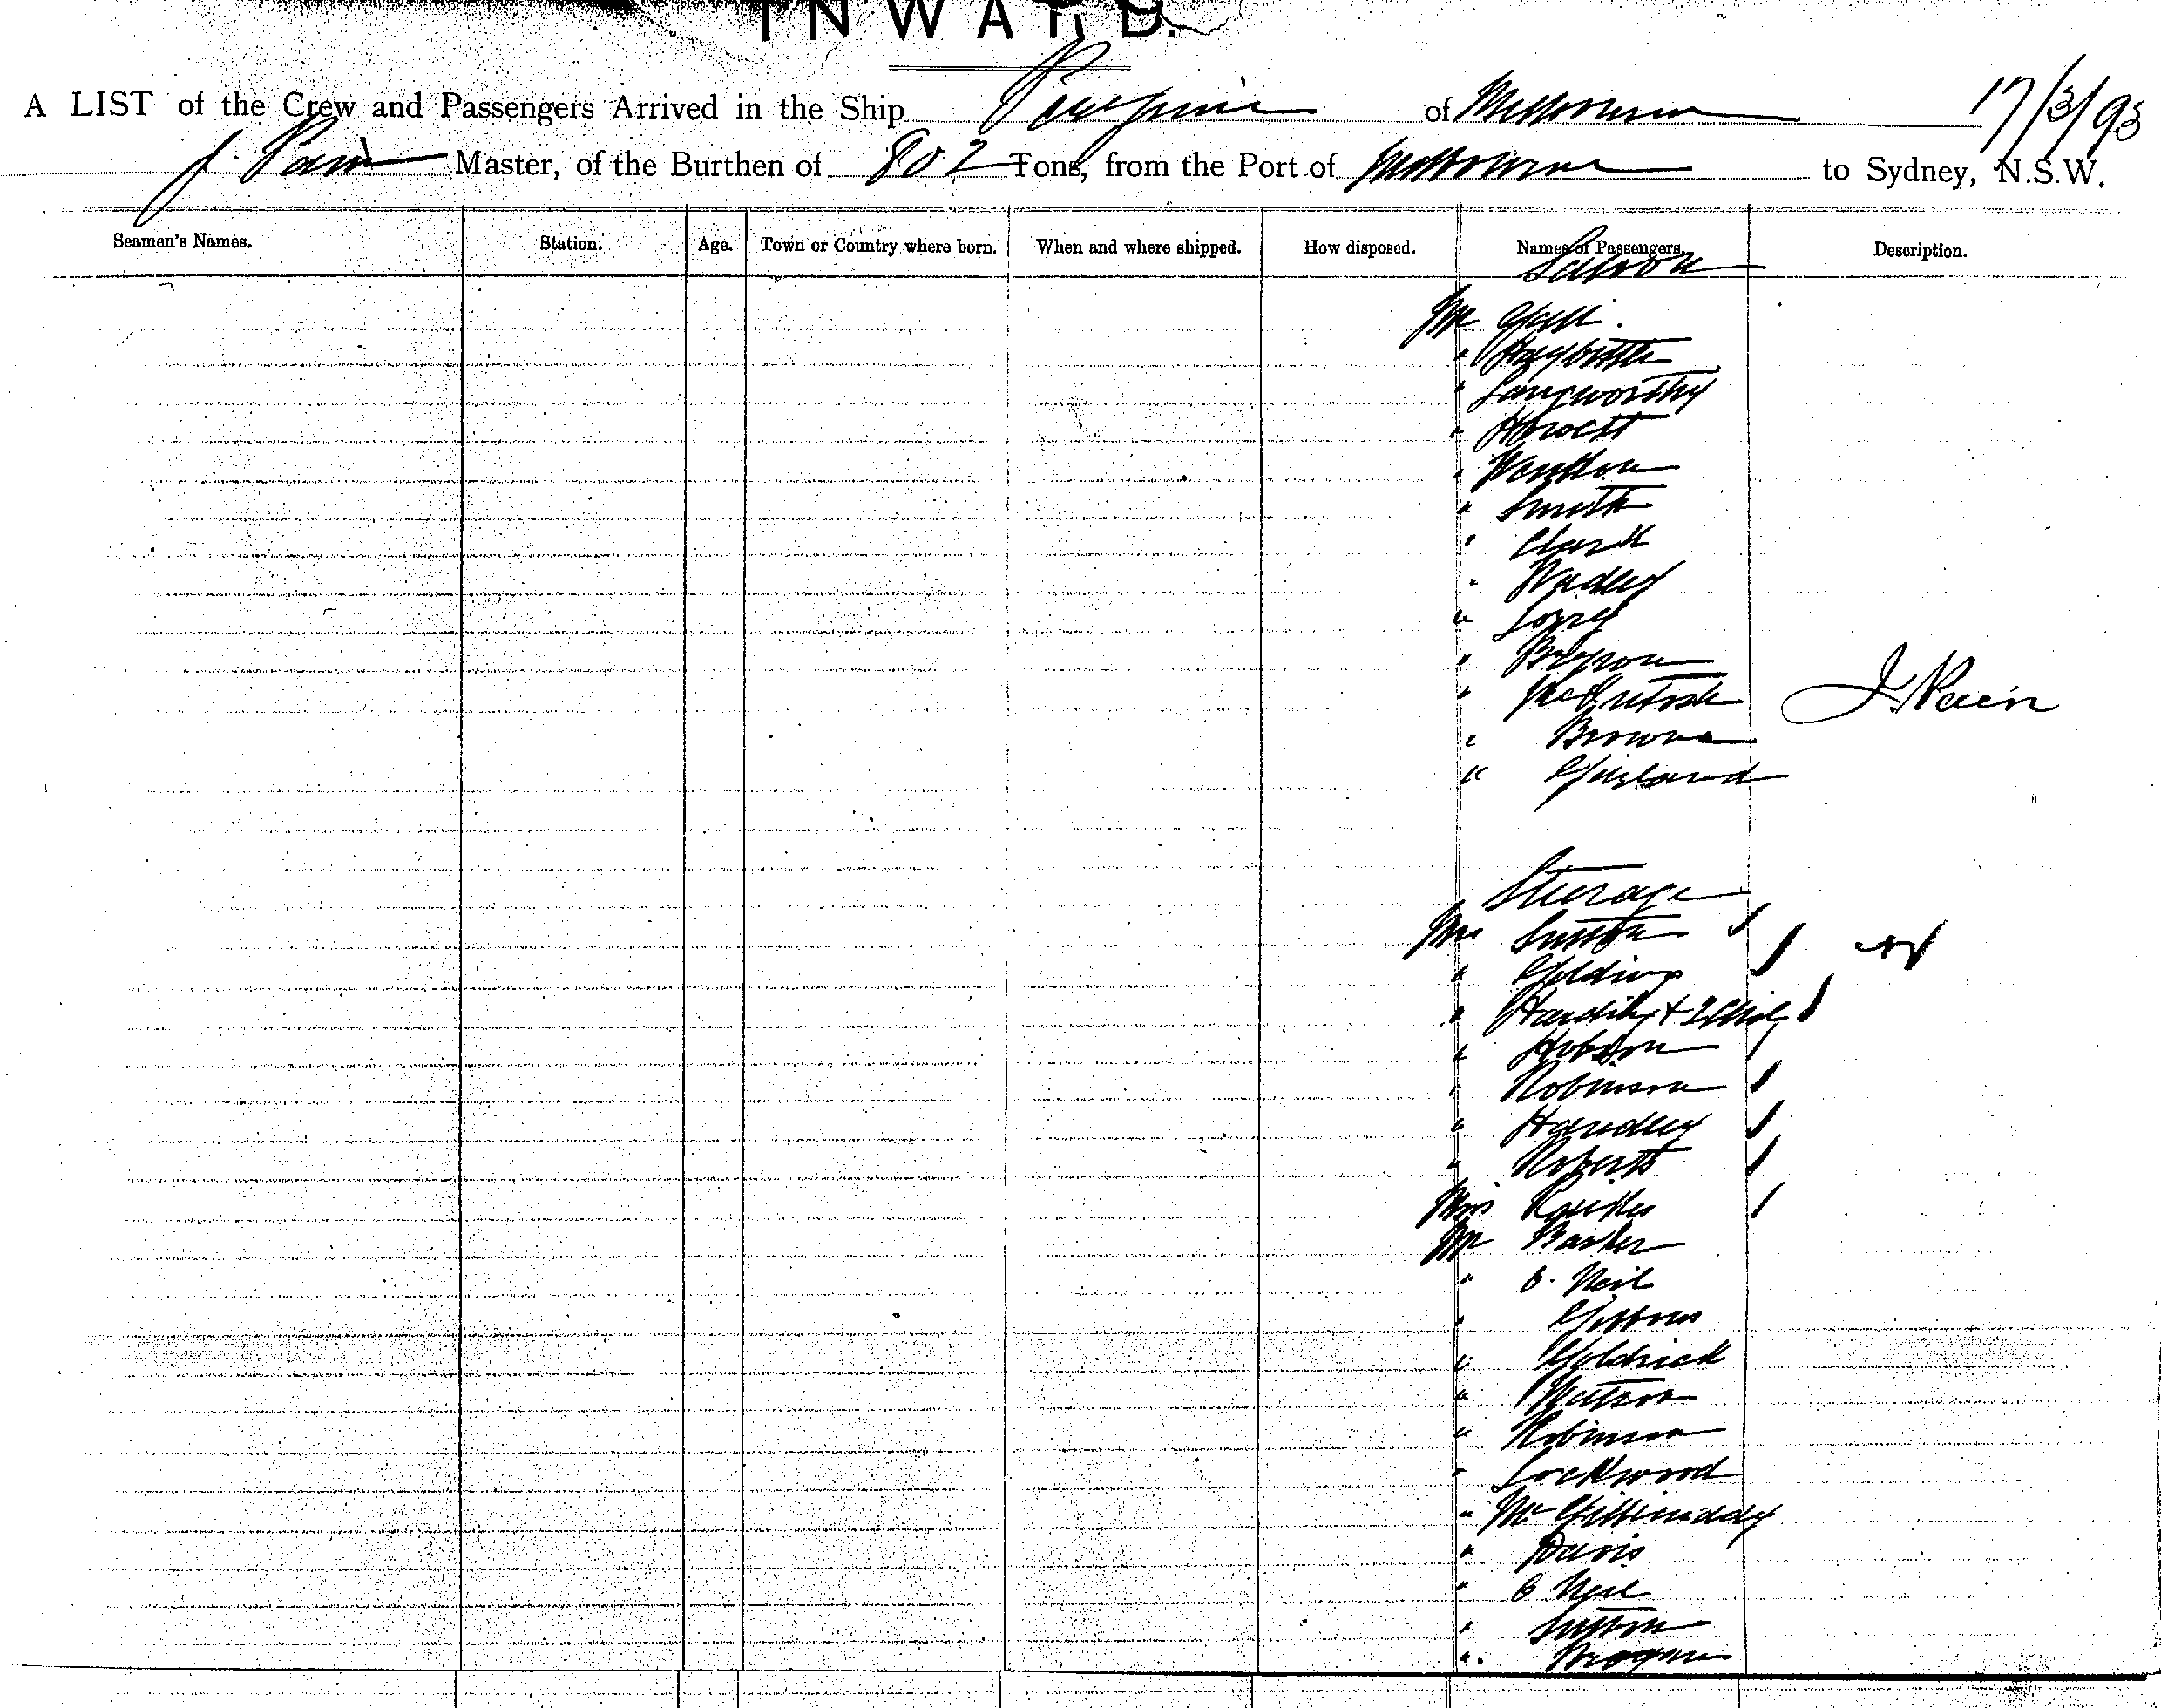 INWARD.
A LIST of the Crew and Passengers Arrived in the Ship Peregrine of Melbourne 17/3/93
J. Pain Master, of the Burthen of 802 Tons, from the Port of Melbourne to Sydney, N.S.W.
Seamen's Names. Station. Age. Town or Country where born. When and where shipped. How disposed. Names of Passengers. Description.
Saloon
Mr
" Haybittle
" Langworthy
" Howitt
"
" Smith
" Clark
" Wadley
" Lorry
"
" McIntosh J. Pain
" Browne
"
Steerage
Mrs Sutton
" Golding
" Harding + 2 Chil
" Hobson
" Robinson
" Handley
" Roberts
Miss
Mr Barker
" O. Neil
" Gibbons
" Goldrick
" Watson
" Robinson
" Lockwood
" Mc
" Davis
" O Neil
" Sutton
"